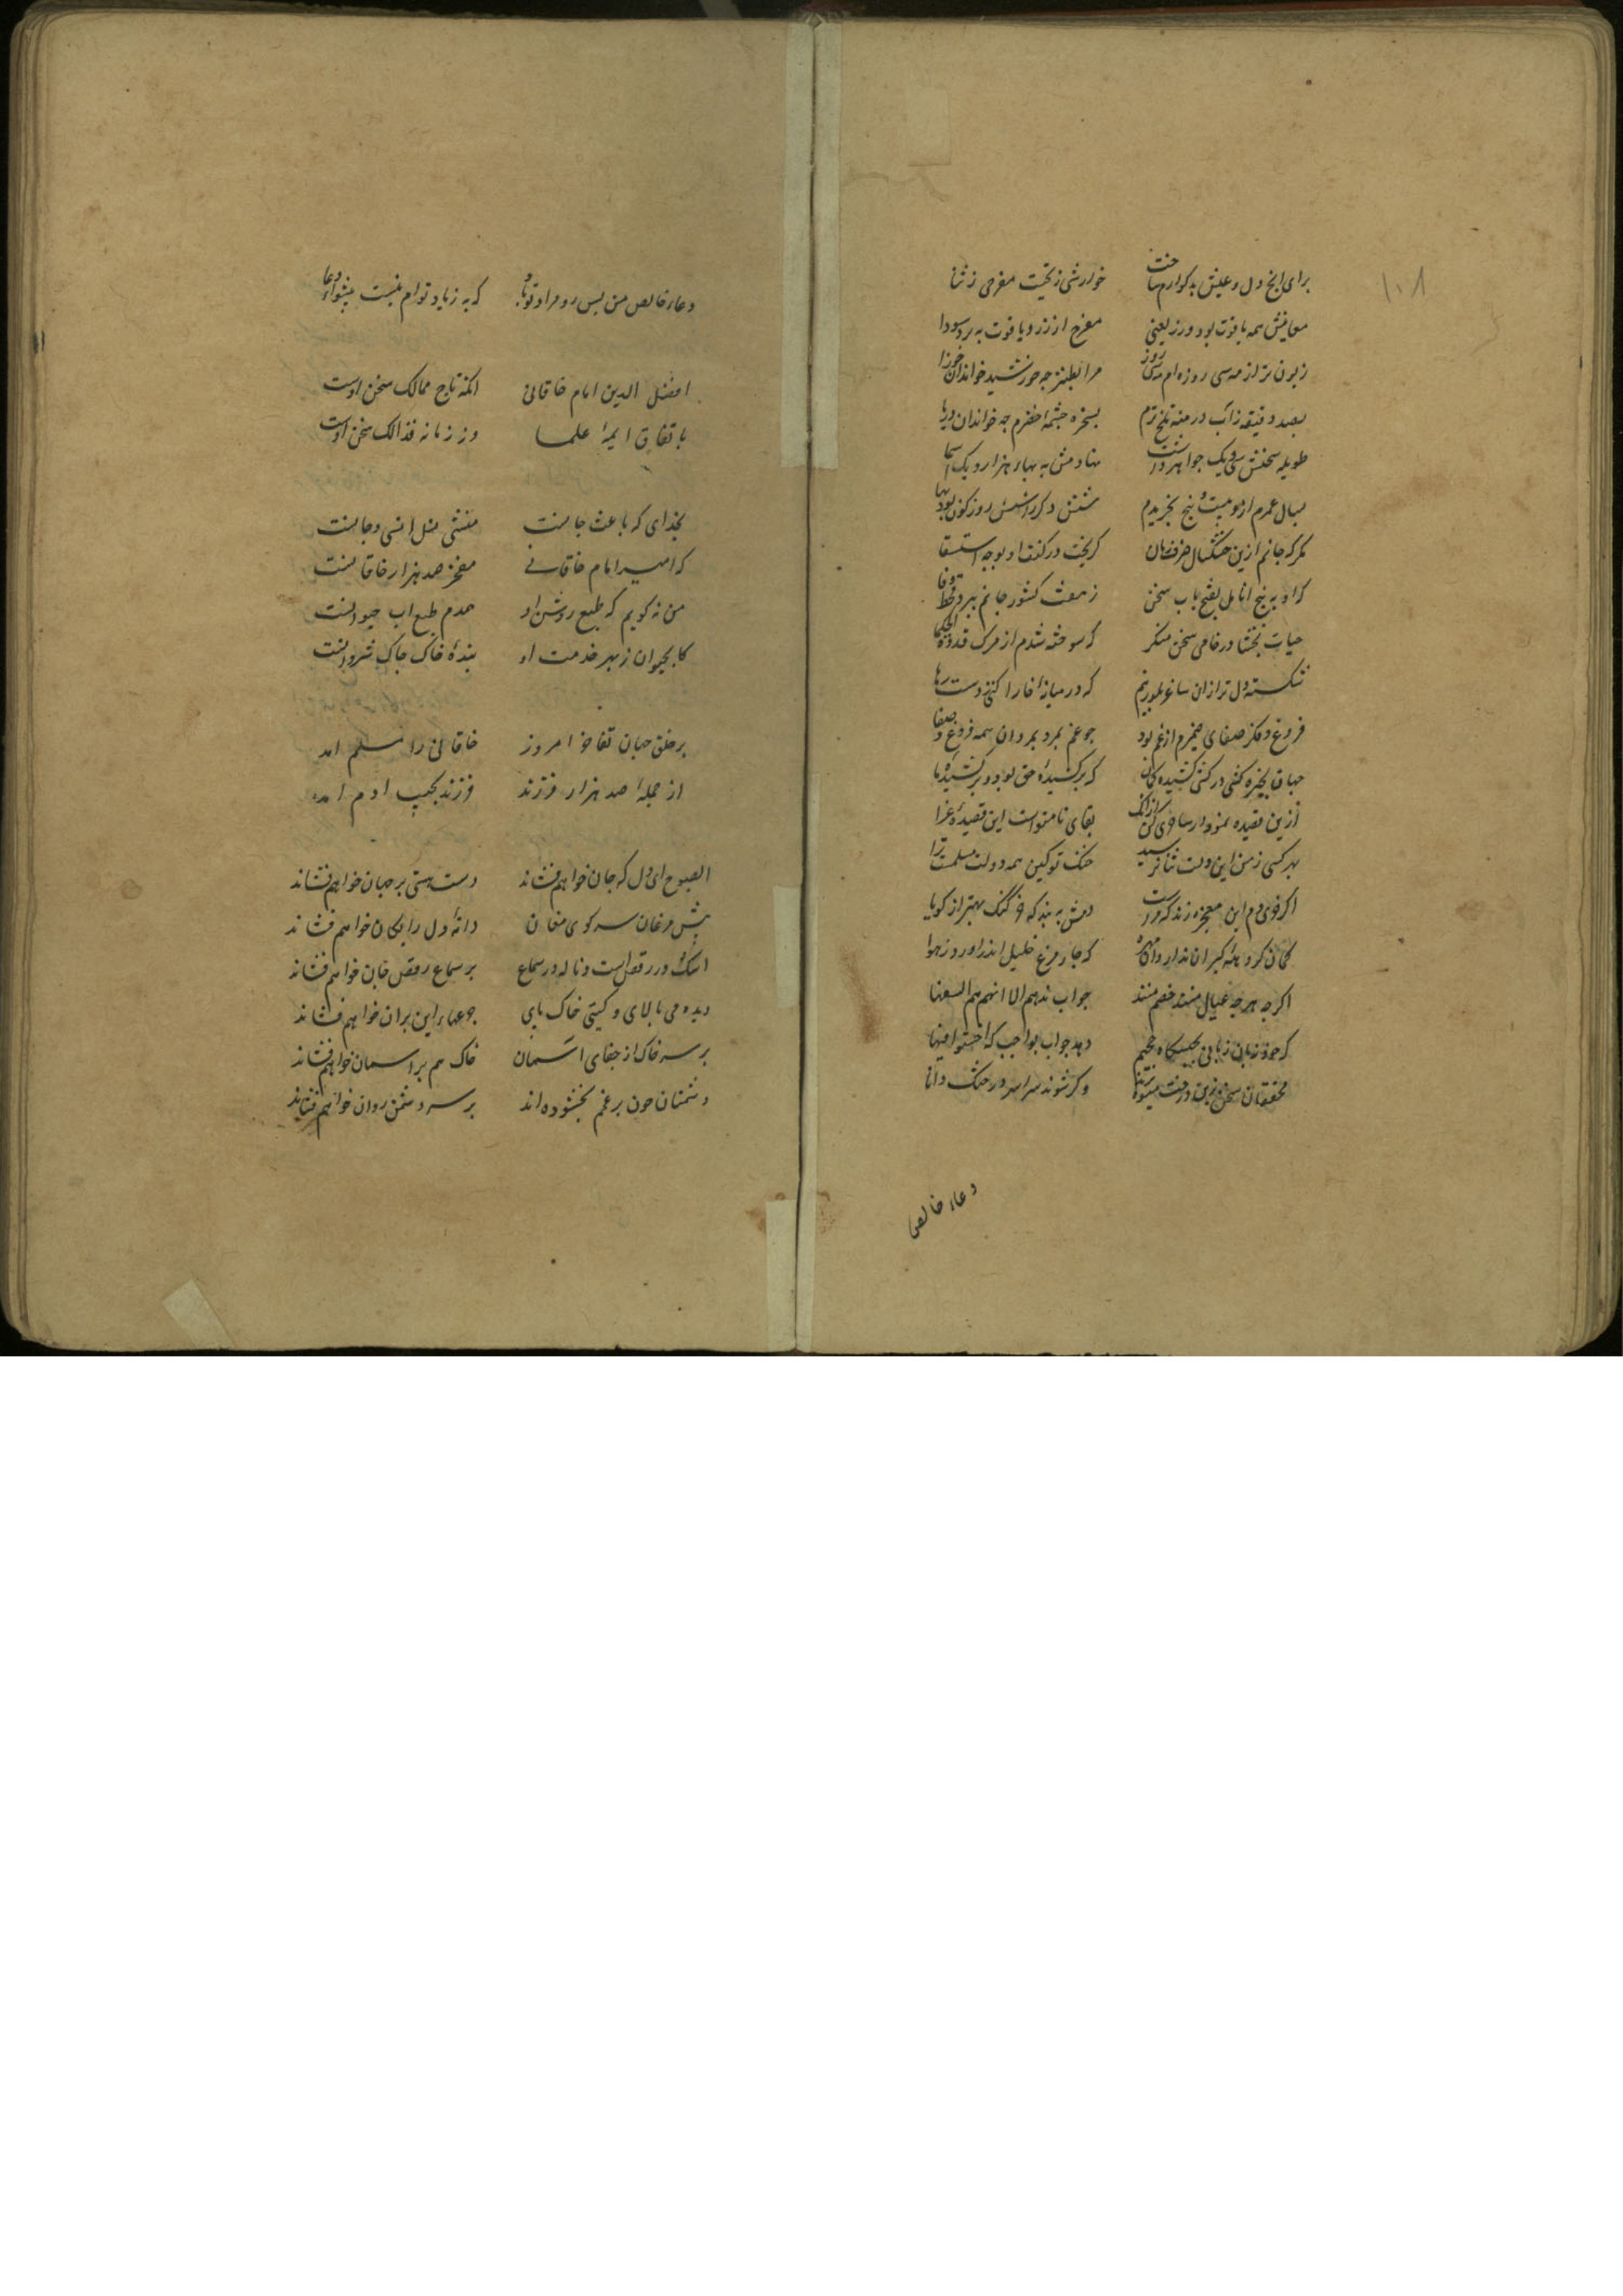 ۱۰۸
برای رنج دل و عیش بد کوارم ساخت خوارشی ز تحیت مفرحی ز ثنا
معانیش همه یاقوت بود و زر یعنی مفرح از زر و یاقوت به برد سودا
زبون تر از مه سی روزه ام مهی سی روز مرا بطنز چه خورشید خواند آن جوزا
بصد دقیقه ز آب درمنه تلخ ترم بسخره چشمهٔ خضرم چه خواند آن دریا
طویله سخنش سی و یک جواهر داشت نهادمش به بهاء هزار و یک اسما
بسال عمرم ازو بیست و پنج بخریدم شش دکر را شش روز کون بود بها
مکر که جانم ازین خشکسال صرف زمان کریخت در کنف او بوجه استسقا
که او به پنج انامل بفتح باب سخن ز هفت کشور جانم ببرد قحط و وبا
حیات بخشا در خامی سخن منکر که سوخته شدم از مرک قدوة الحکما
شکسته دل تر از آن ساغر بلورینم که در میانهٔ خارا کنی ز دست رها
فروغ فکر و صفای ضمیرم از غم بود چو غم بمرد بمرد آن همه فروغ و صفا
جهان بخیره کشی در کسی کشیده کمان که برکشیدهٔ حق بود و برکشیدهٔ ما
ازین قصیده نمودار ساحری کن ازانک بقای نام تو است این قصیدهٔ غرا
بهر کسی ز من این دولت ثنا نرسید خنک تو کین همه دولت مسلمست ترا
اکر خری دم این معجزه زند که مراست دمش ببند که خر کنک بهتر از کویا
کمان کروههٔ کبران ندارد آن مهره که چار مرغ خلیل اندر آورد ز هوا
اکرچه هرچه عیال منند خصم منند جواب ندهم الا انهم هم السفها
که خود زبان زبانی بحبسکاه جحیم دهد جواب بواجب که اخسئوا فیها
محققان سخن زین درخت میوه برند وکر شوند سراسر درختک دانا
دعاء خالص
دعاء خالص من پس رو مراد تو باد که به ز یاد توام نیست پیشوای دعا
افضل الدین امام خاقانی انکه تاج ممالک سخن اوست
باتفاق ایمهٔ علما وز زمانه فذالک سخن اوست
بخدای که باعث جانست منشی نسل انسی و جانست
که امیر امام خاقانی مفخر صد هزار خاقانست
من نه کویم که طبع روشن او همدم طبع اب حیوانست
کاب حیوان ز بهر خدمت او بندهٔ خاک خاک شروانست
بر خلق جهان تفاخر امروز خاقانی را مسلم امد
از جملهٔ صد هزار فرزند فرزند نجیب ادم امد
الصبوح ای دل که جان خواهم فشاند دست مستی بر جهان خواهم فشاند
پیش مرغان سر کوی مغان دانهٔ دل رایکان خواهم فشاند
اشک در رقص است و ناله در سماع بر سماع و رقص جان خواهم فشاند
دیده می بالای و کیتی خاک پای جرعهاء این بران خواهم فشاند
بر سر خاک از جفای آسمان خاک هم بر اسمان خواهم فشاند
دشمنان چون بر غمم بخشوده اند بر سر دشمن روان خواهم فشاند